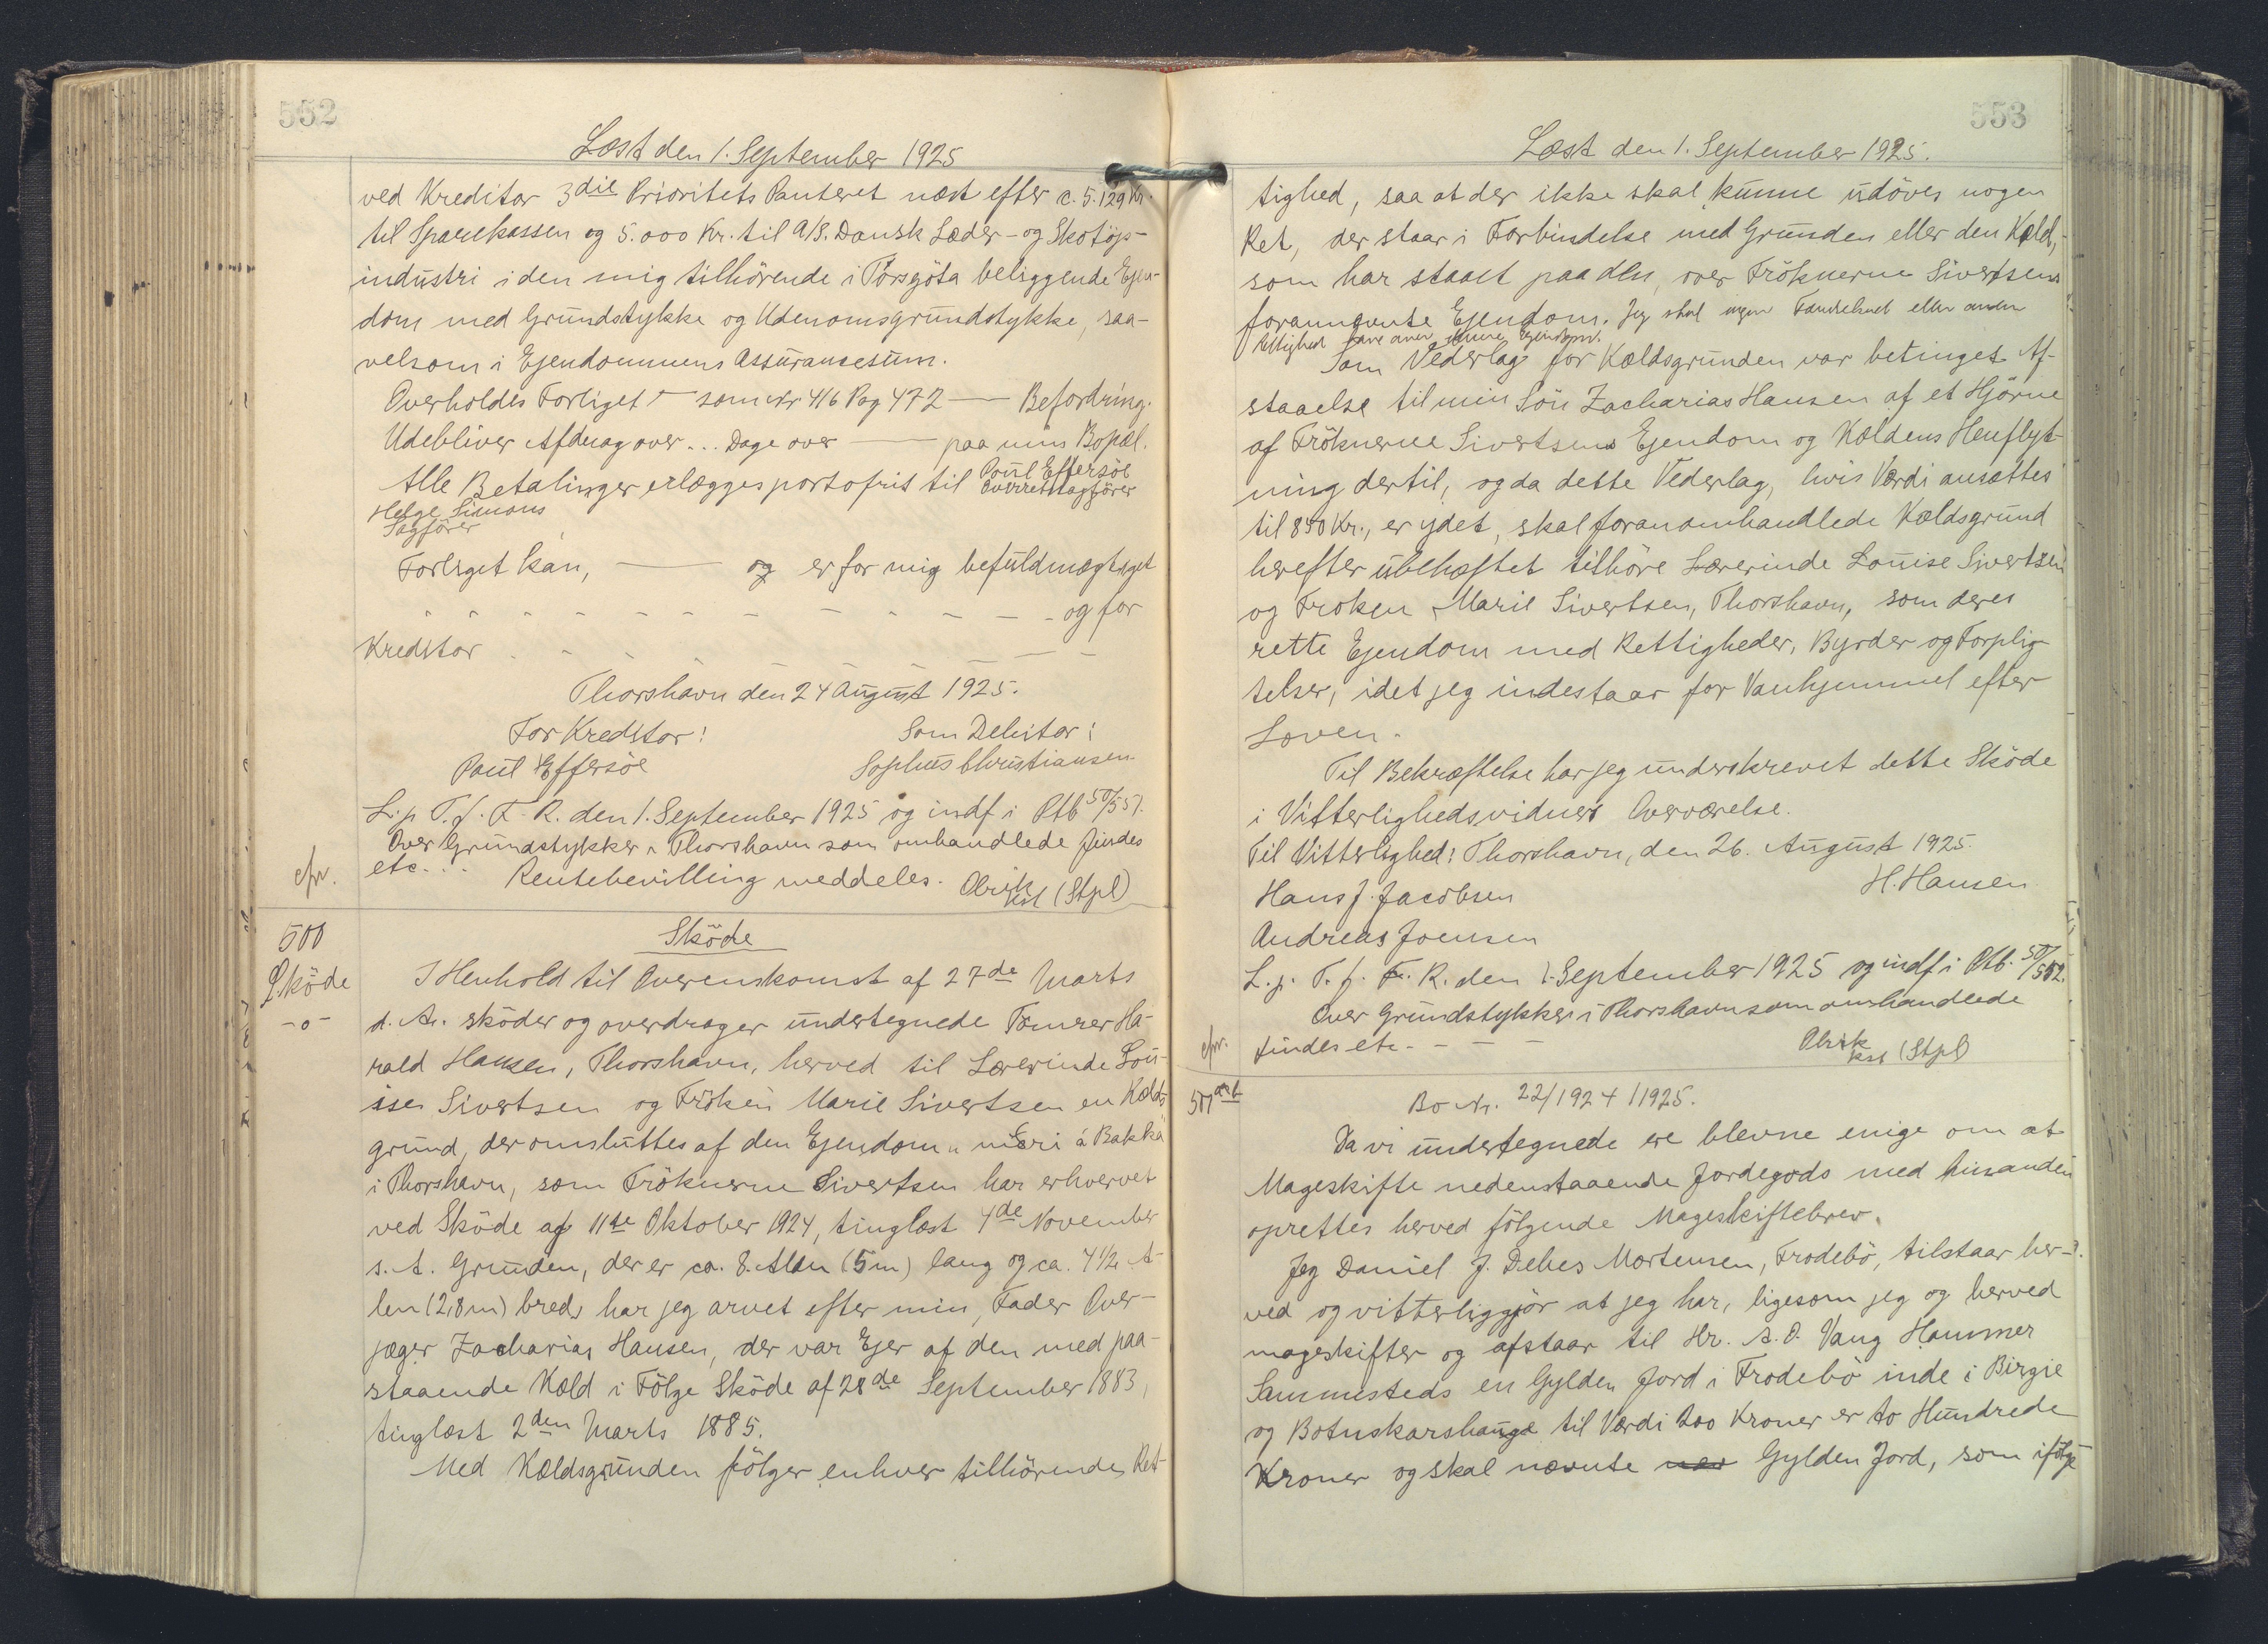 552
Læst den 1. September 1925
ved Kreditor 3die Prioritets Panteret næst efter c. 5.129 Kr.
til Sparekassen og 5.000 Kr. til A/S. Dansk Læder- og Skotöjs-
industri i den mig tilhörende i Törsgöta beliggende Ejen-
dom med Grundstykke og Udenomsgrundstykke, saa-
velsom i Ejendommens Assurancesum.
Overholdes Forliget - som Nr 416 Pag 472 — Befordring.
Udebliver Afdrag over ... Dage over — paa min Bopæl.
Alle Betalinger erlægges portofrit til Poul Effersöe
Overretssagförer
Helge Simons
Sagförer
Forliget kan, — og er for mig befuldmægtiget
- - - - - - - - - - - og for
Kreditor - - - - - - - -
Thorshavn den 24 August 1925.
For Kreditor: Som Debitor:
Poul Effersöe Sophus Christiansen
L. p. T. f. F. R. den 1. September 1925 og indf i Ptb 50/551.
Over Grundstykker i Thorshavn som omhandlede findes
cfr. etc... Rentebevilling meddeles. Olrik
kst (Stpl)
500
Sköde
-o-
Sköde
I Henhold til Overenskomst af 27de Marts
d. Ar. sköder og overdrager undertegnede Tömrer Ha-
rald Hansen, Thorshavn, herved til Lærerinde Lou-
ise Sivertsen og Fröken Marie Sivertsen en Kælds-
grund, der omsluttes af den Ejendom "niðri á Bakka"
i Thorshavn, som Fröknerne Sivertsen har erhvervet
ved Sköde af 11te Oktober 1924, tinglæst 4de November
s. A. Grunden, der er ca. 8. Alen (5 m) lang og ca. 4½ A-
len (2,8 m) bred, har jeg arvet efter min Fader Over-
jæger Zacharias Hansen, der var Ejer af den med paa-
staaende Kæld i Fölge Sköde af 28de September 1883,
tinglæst 2den Marts 1885.
Med Kældsgrunden fölger enhver tilhörende Ret-
553
Læst den 1. September 1925.
tighed, saa at der ikke skal kunne udöves nogen
Ret, der staar i Forbindelse med Grunden eller den Kæld,
som har staaet paa den, over Fröknerne Sivertsens
forannævnte Ejendom. Jeg skal ingen Færdselsret eller anden
Rettighed have over denne Ejendom.
Som Vederlag for Kældsgrunden var betinget Af-
staaelse til min Sön Zacharias Hansen af et Hjörne
af Fröknerne Sivertsens Ejendom og Kældens Henflyt-
ning dertil, og da dette Vederlag, hvis Værdi ansættes
til 850 Kr., er ydet, skal foranomhandlede Kældsgrund
herefter ubehæftet tilhöre Lærerinde Louise Sivertsen
og Froken Marie Sivertsen, Thorshavn, som deres
rette Ejendom med Rettigheder, Byrder og Forplig-
telser, idet jeg indestaar for Vanhjemmel efter
Loven.
Til Bekræftelse har jeg underskrevet dette Sköde
i Vitterlighedsvidners Overværelse.
Til Vitterlighed: Thorshavn, den 26. August 1925.
Hans J. Jacobsen H. Hansen
Andreas Joensen
L. p. T. f. F. R. den 1. September 1925 og indf i Ptb. 50/552.
Over Grundstykker i Thorshavn som omhandlede
cfr. findes etc. - - - Olrik
kst (Stpl)
Bo Nr. 22/1924/1925.
Da vi undertegnede ere blevne enige om at
Mageskifte nedenstaaende Jordegods med hinanden
oprettes herved fölgende Mageskiftebrev.
Jeg Daniel J. Debes Mortensen, Frodebö, tilstaar her-
ved og vitterliggjör at jeg har, ligesom jeg og herved
mageskifter og afstaar til Hr. A. O. Vang Hammer
Sammesteds en Gylden Jord i Frodebö inde i Birgie
og Botnskarshauge til Værdi 200 Kroner er to Hundrede
Kroner og skal nævnte Gylden Jord, som ifölge